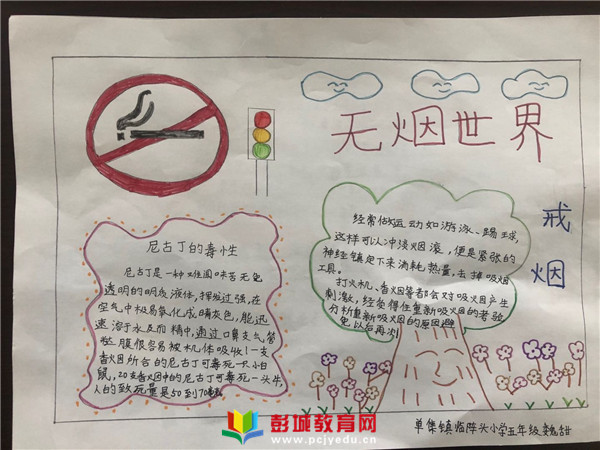 无烟世界
戒
烟
尼古丁的毒性
尼古丁是一种难闻味苦无色
透明的明质液体,挥发过强,在
空气中极易氧化成暗灰色,能迅
速溶于水及酒精中,通过口鼻支气管
腹很容易被机体吸收1一支
香烟所含的尼古丁可毒死一只小白
鼠,20支香烟中的尼古丁可毒死一头牛,
人的致死量是50到70
经常做运动如游泳、踢球,
这样可以冲淡烟瘾,便是紧张的
神经镇定下来消耗热量,去掉吸烟
工具。
打火机、香烟等都会对吸烟产生
刺激,经受得住重新吸烟的考验
分析重新吸烟的原因避
免以后再次
单集镇临陴头小学五年级 魏甜
彭城教育网
www.pcjyedu.cn